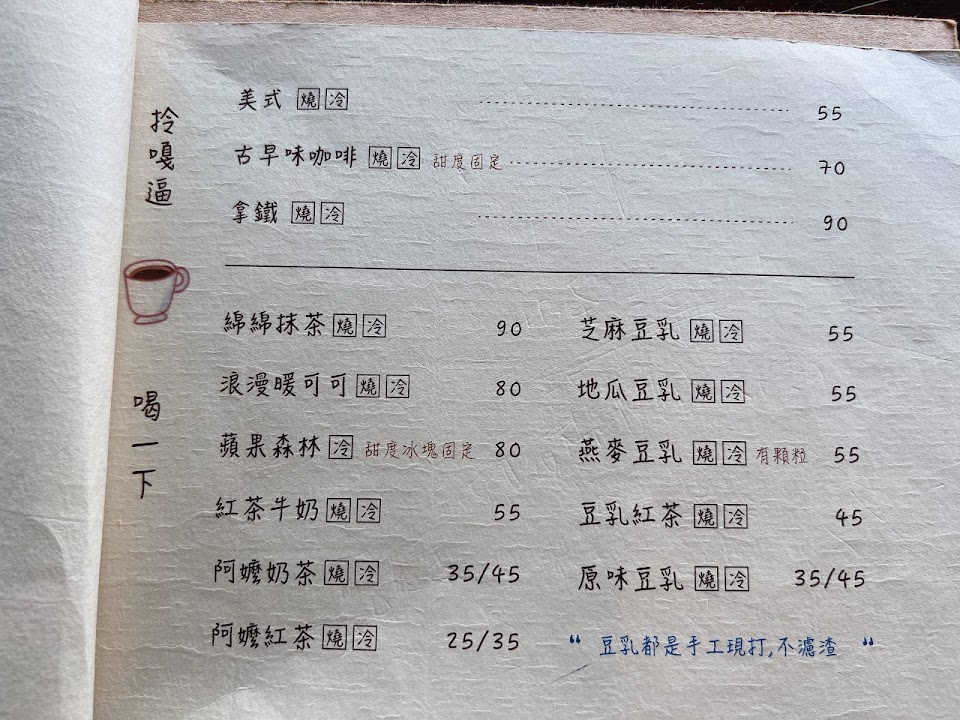 拎嘎逼
美式 燒 冷 55
古早味咖啡 燒 冷 甜度固定 70
拿鐵 燒 冷 90
喝一下
綿綿抹茶 燒 冷 90
浪漫暖可可 燒 冷 80
蘋果森林 冷 甜度冰塊固定 80
紅茶牛奶 燒 冷 55
阿嬤奶茶 燒 冷 35/45
阿嬤紅茶 燒 冷 25/35
芝麻豆乳 燒 冷 55
地瓜豆乳 燒 冷 55
燕麥豆乳 燒 冷 有顆粒 55
豆乳紅茶 燒 冷 45
原味豆乳 燒 冷 35/45
“ 豆乳都是手工現打,不濾渣 “